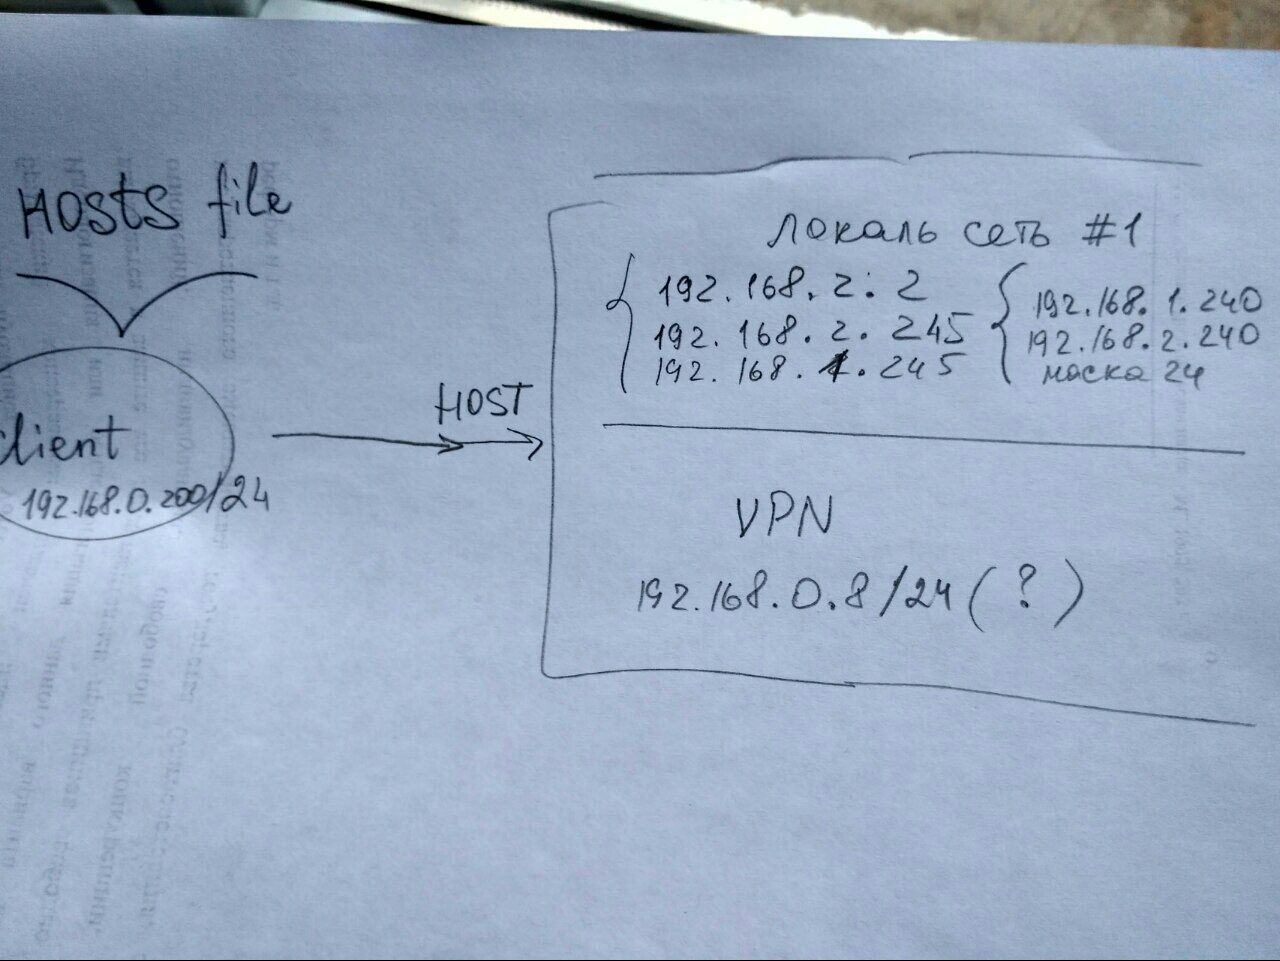 HOSTS file
client
192.168.0.200/24
HOST
Локаль сеть #1
192.168.2.2
192.168.2.245
192.168.1.245
192.168.1.240
192.168.2.240
маска 24
VPN
192.168.0.8/24 (?)